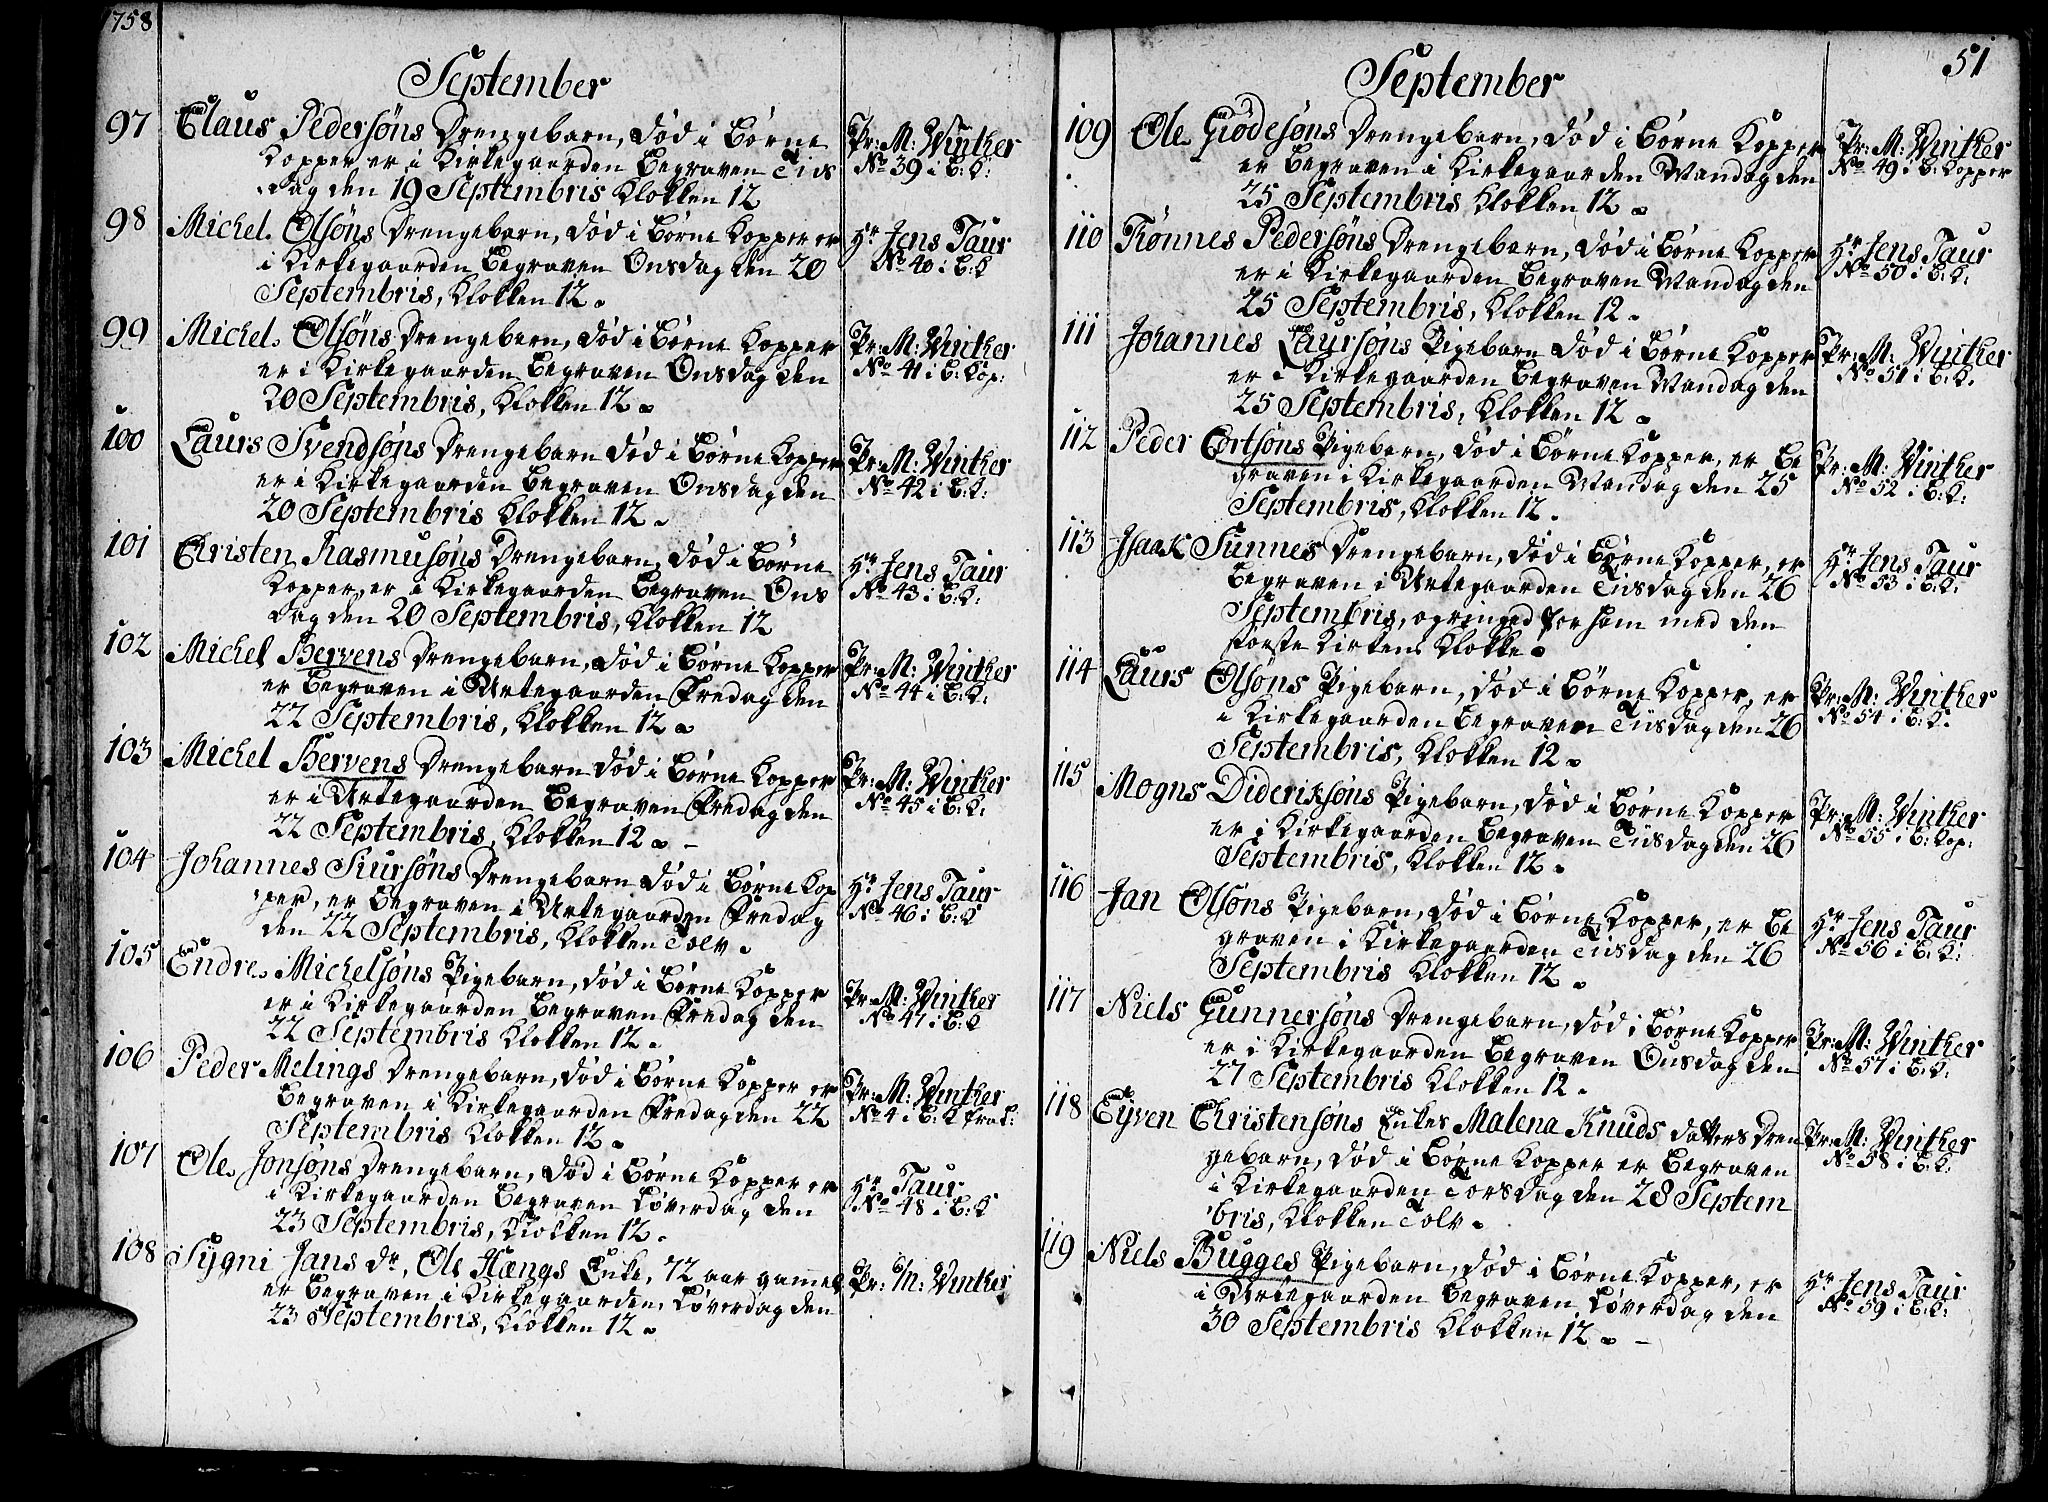 1758
September
97 Claus Pedersöns Drengebarn, død i Børne Pr: M: Winther
Kopper, er i Kirkegaarden Begraven Tiis No 39 i B: K:
dag den 19 Septembris Klokken 12
98 Michel Olsöns Drengebarn, død i Børne Kopper er Hr Jens Taur
i Kirkegaarden Begraven Onsdag den 20 No 40 i B: K
Septembris, Klokken 12.
99 Michel Olsöns Drengebarn, død i Børne Kopper Pr: M: Winther
er i Kirkegaarden Begraven Onsdag den No 41 i B: Kop:
20 Septembris, Klokken 12.
100 Laurs Svendsöns Drengebarn død i Børne Kopper Pr: M: Winther
er i Kirkegaarden Begraven Onsdag den No 42 i B: K:
20 Septembris Klokken 12.
101 Christen Rasmusöns Drengebarn, død i Børne Hr Jens Taur
Kopper, er i Kirkegaarden Begraven Ons No 43 i B: K:
dag den 20 Septembris, Klokken 12
102 Michel Bervens Drengebarn, død i Børne Kopper Pr: M: Winther
er Begraven i Urtegaarden Fredag den No 44 i B: K:
22 Septembris, Klokken 12.
103 Michel Bervens Drengebarn død i Børne Kopper Pr: M: Winther
er i Urtegaarden Begraven Fredag den No 45 i B: K:
22 Septembris, Klokken 12. -
104 Johannes Siursöns Drengebarn død i Børne Kop Hr Jens Taur
per, er Begraven i Urtegaarden Fredag No 46 i B: K
den 22 Septembris, Klokken Tolv.
105 Endre Michelsöns Pigebarn, død i Børne Kopper Pr: M: Winther
er i Kirkegaarden Begraven Fredag den No 47 i B: K
22 Septembris Klokken 12.
106 Peder Melings Drengebarn, død i Børne Kopper er Pr: M: Winther
Begraven i Kirkegaarden Fredag den 22 No 4 i B: K
Septembris Klokken 12.
107 Ole Jonsöns Drengebarn, død i Børne Kopper er Hr Taur
i Kirkegaarden Begraven Løverdag den No 48 i B: K
23 Septembris, Klokken 12.
108 Sygni Jans dr, Ole Hængs Enke, 72 aar gamel Pr: M: Winther
er Begraven i Kirkegaarden, Løverdag den
23 Septembris, Klokken 12.
51
September
109 Ole Giödesöns Drengebarn, død i Børne Kopper Pr: M: Winther
er Begraven i Kirkegaarden Mandag den No 49 i B: Kopper
25 Septembris Klokken 12.
110 Tönnes Pedersöns Drengebarn, død i Børne Kopper Hr Jens Taur
er i Kirkegaarden Begraven Mandag den No 50 i B: K:
25 Septembris, Klokken 12.
111 Johannes Laursöns Pigebarn død i Børne Kopper Pr: M: Winther
er i Kirkegaarden Begraven Mandag den No 51 i B: K.
25 Septembris, Klokken 12.
112 Peder Cortsöns Pigebarn, død i Børne Kopper, er Be Pr: M: Winther
graven i Kirkegaarden Mandag den 25 No 52 i B: K:
Septembris, Klokken 12.
113 Isaak Sunnes Drengebarn, død i Børne Kopper, er Hr Jens Taur
Begraven i Urtegaarden Tiisdag den 26 No 53 i B: K:
Septembris, og ringed for ham med den
første Kirkens Klokke.
114 Laurs Olsöns Pigebarn, død i Børne Kopper, er Pr: M: Winther
i Kirkegaarden Begraven Tiisdag den 26 No 54 i B: K.
Septembris, Klokken 12.
115 Mogns Dideriksöns Pigebarn, død i Børne Kopper Pr: M: Winther
er i Kirkegaarden Begraven Tiisdag den 26 No 55 i B: Kop:
Septembris, Klokken 12.
116 Jan Olsöns Pigebarn, død i Børne Kopper, er Be Hr Jens Taur
graven i Kirkegaarden Tiisdag den 26 No 56 i B: K:
Septembris Klokken 12.
117 Niels Gunnersöns Drengebarn, død i Børne Kopper Pr: M: Winther
er i Kirkegaarden Begraven Onsdag den No 57 i B: K:
27 Septembris Klokken 12.
118 Eyven Christensöns Enkes Malena Knuds datters Dren Pr: M: Winther
gebarn, død i Børne Kopper er Begraven No 58 i B: K:
i Kirkegaarden Torsdag den 28 Septem
bris, Klokken Tolv.
119 Niels Bugges Pigebarn, død i Børne Kopper, er Hr Jens Taur
i Urtegaarden Begraven Løverdag den No 59 i B: K:
30 Septembris Klokken 12. -